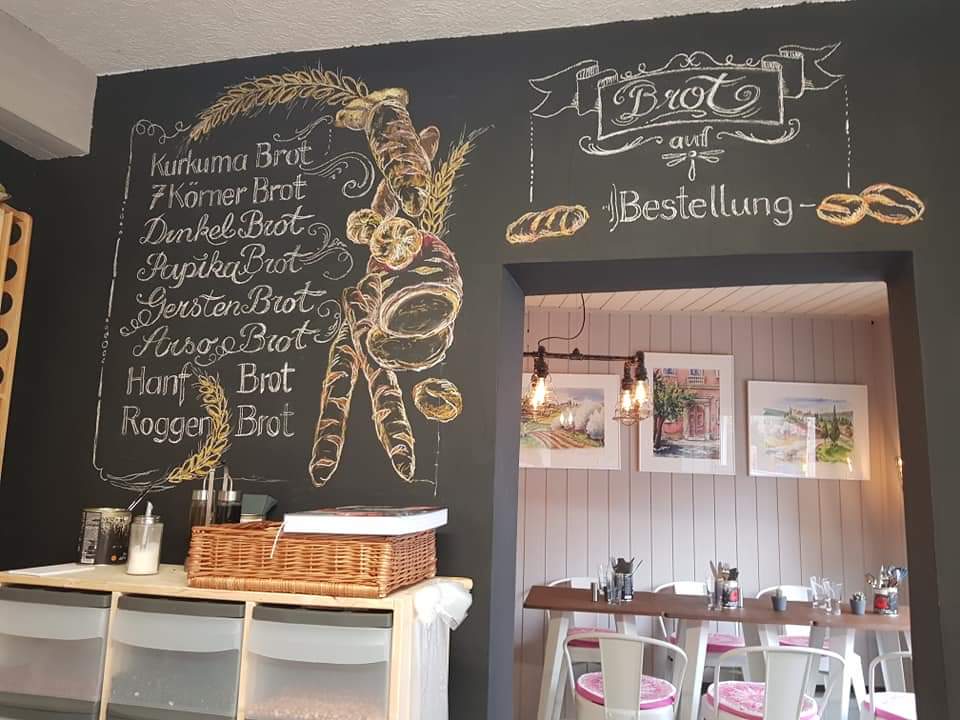 Kurkuma Brot
7 Körner Brot
Dinkel Brot
Papika Brot
Gersten Brot
Anso Brot
Hanf Brot
Roggen Brot
Brot
auf
Bestellung